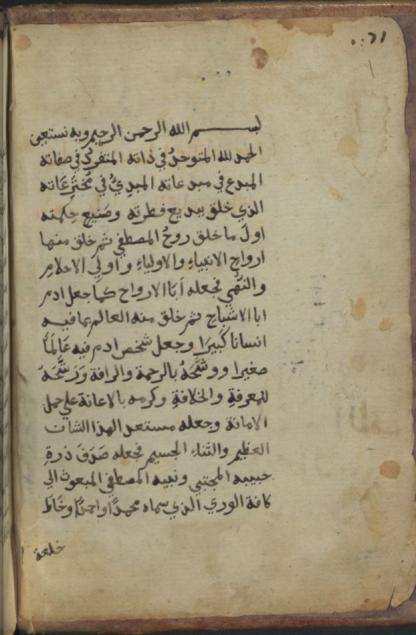 بسم الله الرحمن الرحيم وبه نستعين
الحمد لله المتوحد في ذاته المتفرد في صفاته
المبدع في مبدعاته المبدئ في مخترعاته
الذي خلق ببديع فطرته وصنيع حكمته
اول ما خلق روح المصطفي ثم خلق منها
ارواح الانبياء والاولياء واولي الاحلام
والنهي فجعله ابا الارواح كما جعل ادم
ابا الاشباح ثم خلق منه العالم بما فيه
انسانا كبيرا وجعل شخص ادم فيه عالما
صغيرا ووشحه بالرحمة والرافة ورشحه
للمعرفة والخلافة وكرمه بالاعانة علي حمل
الامانة وجعله مستعدا لهذا الشان
العظيم والثناء الجسيم فجعله صدف ذرة
حبيبه المجتبي ونبيه المصطفي المبعوث الي
كافة الوري الذي سماه محمدا واحمد وخاط
خلعة